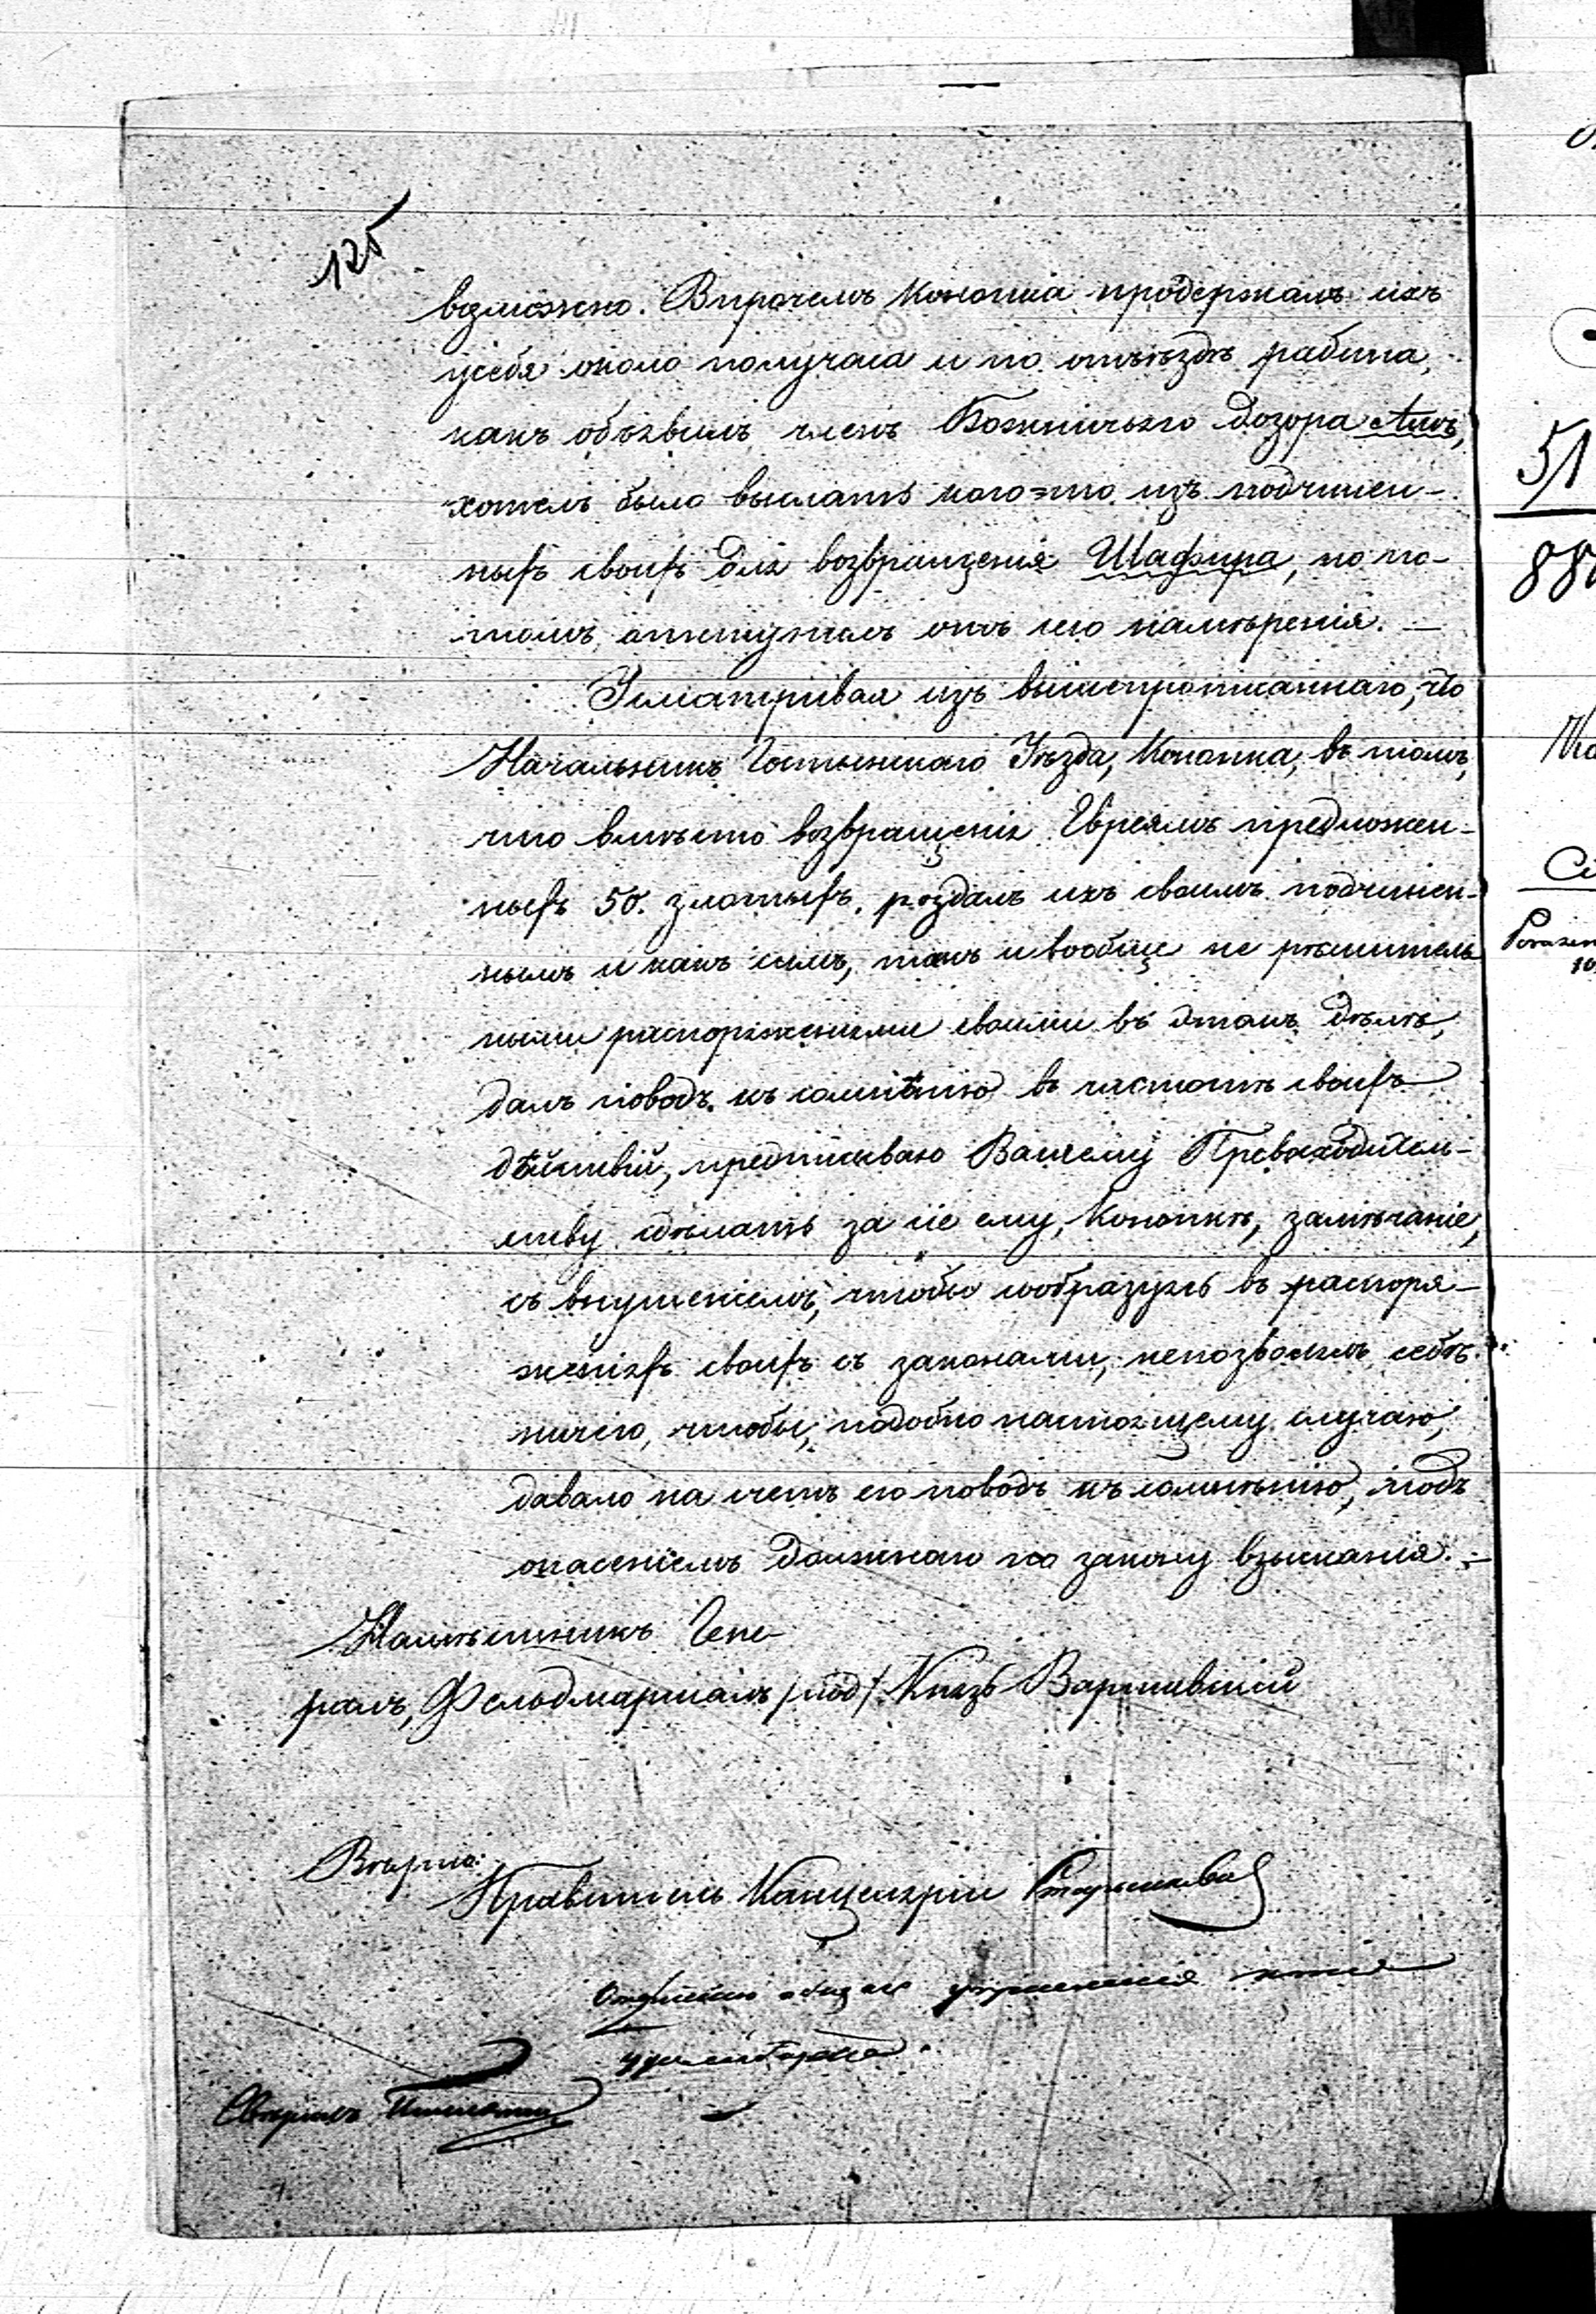 125
возможно. Впрочемъ Конопка продержалъ ихъ
у себя около получаса и по отъѣздѣ рабина,
какъ объявилъ членъ Божничьяго дозора Ашъ,
хотелъ было выслать кого=то изъ подчинен-
ныхъ своихъ для возвращенія Шафира, но по-
томъ отступилъ отъ сего намѣренія. —
Усматривая изъ вышепрописаннаго, что
Начальникъ Гостынскаго Уѣзда, Конопка, въ томъ,
что вмѣсто возвращенія Евреямъ предложен-
ныхъ 50. злотыхъ, роздалъ ихъ своимъ подчинен-
нымъ и какъ симъ, такъ и вообще не рѣшитель
ными распоряженіями своими въ этомъ дѣлѣ,
далъ поводъ къ сомнѣнію въ чистотѣ своихъ
дѣйствій, предписываю Вашему Превосходитель-
ству сдѣлать за сіе ему, Конопкѣ, замѣчаніе,
съ внушеніемъ, чтобы сообразуясь въ распоря-
женіяхъ своихъ съ законами, непозволялъ себѣ
ничего, чтобы, подобно настоящему случаю,
давало на счетъ его поводъ къ сомнѣнію, подъ
опасеніемъ должнаго по закону взысканія. —
Намѣстникъ Гене-
ралъ, Фельдмаршалъ /под/ Князь Варшавскій
Вѣрно:
Правитель Канцеляріи
51